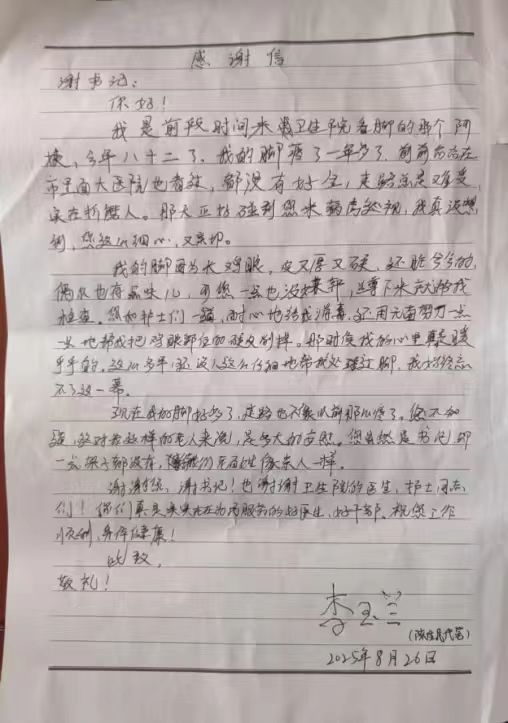 感谢信
谢书记:
你好!
我是前段时间来卫生院看脚的那个阿
婆,今年八十二了。我的脚疼了一年多了,前前后后在
市里面大医院也看过,都没有好全,走路总是难受,
实在折磨人。那天正好碰到您来病房巡视,我真没想
到,您这么细心,又亲切。
我的脚因为长鸡眼,皮又厚又硬,还脏兮兮的,
偶尔也有点味儿,可您一点也没嫌弃,蹲下来就给我
检查。您和护士们一起,耐心地给我消毒,还用刀一点
一点地帮我把鸡眼部位的硬皮削掉。那时候我的心里真是暖
乎乎的,这么多年,还没人这么仔细地帮我处理过脚,我始终忘
不了这一幕。
现在我的脚好多了,走路也不像以前那么疼了。您不知
道,这对我这样的老人来说,是多大的安慰。您虽然是书记,却
一点架子都没有,们老百姓像亲人一样。
谢谢您,谢书记!也谢谢卫生院的医生、护士同志
们!你们真是实实在在为民服务的好医生、好干部。祝您工作
顺利,身体健康!
此致
敬礼!
李玉兰
(代写)
2025年8月26日